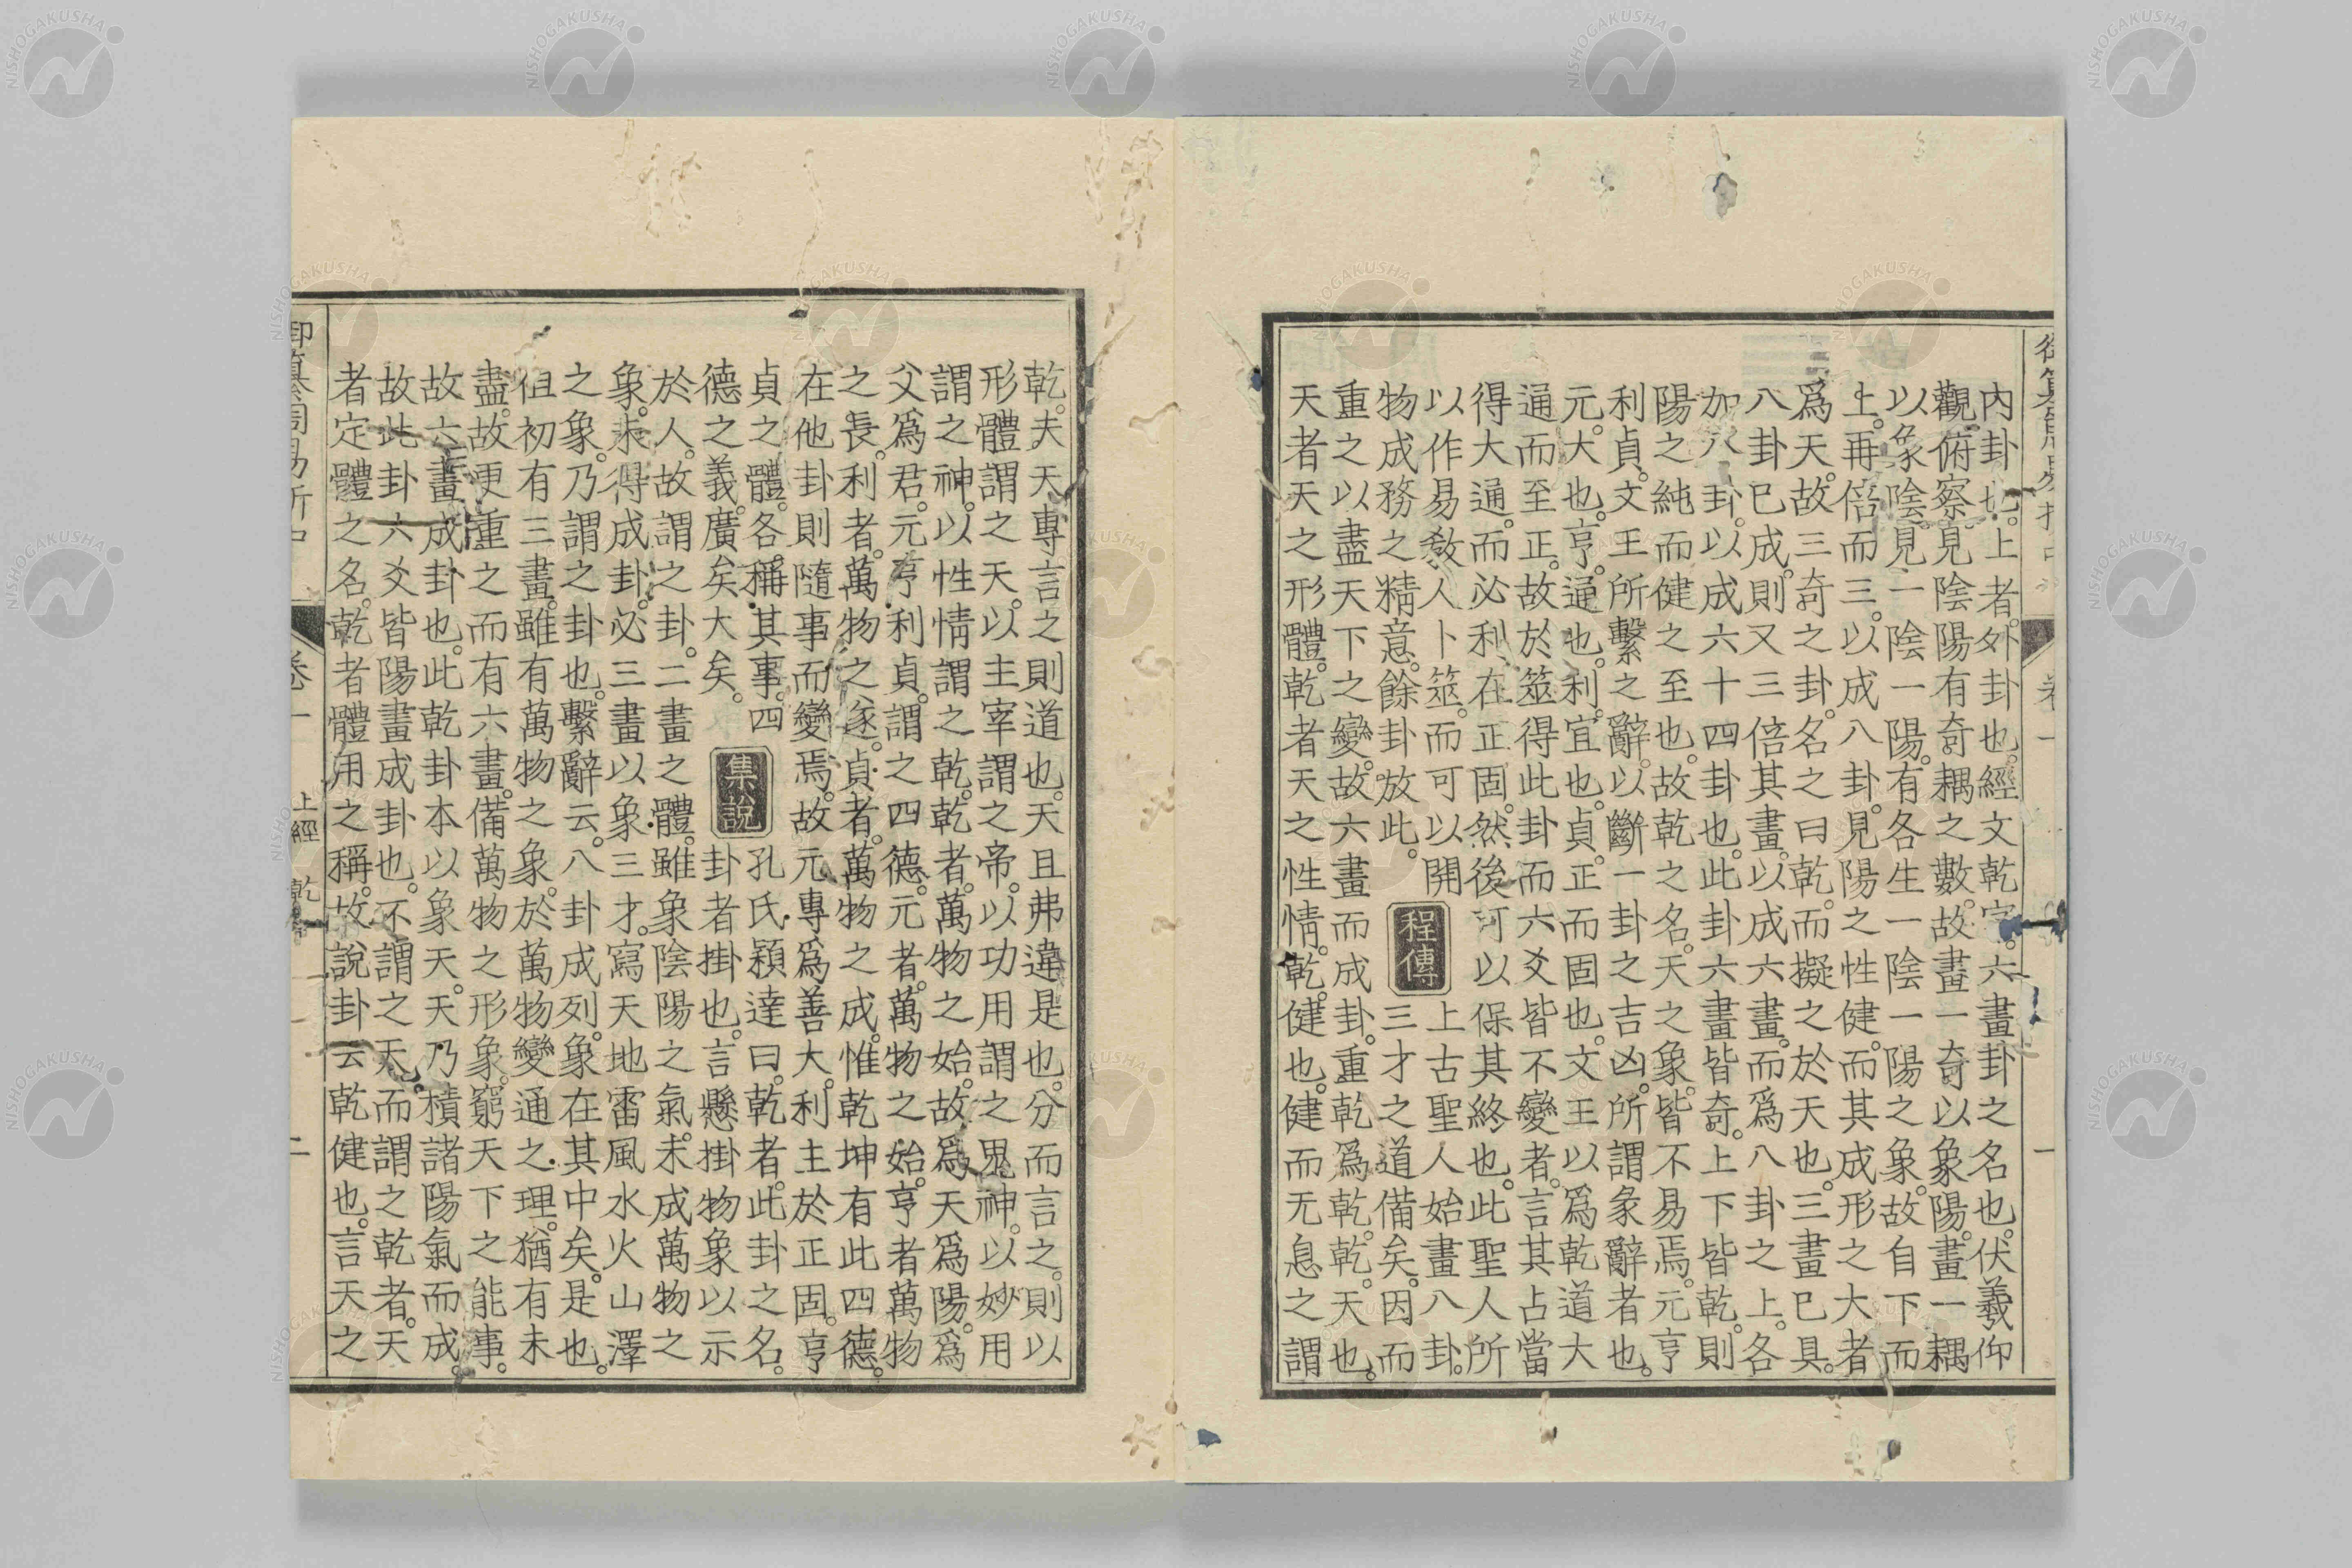 御纂周易折中 卷一 一
內卦也。上者。外卦也。經文乾字。六畫卦之名也。伏羲仰
觀俯察見陰陽有奇耦之數。故畫一奇以象陽。畫一耦
以象陰。見一陰一陽。有各生一陰一陽之象。故自下而
上。再倍而三。以成八卦。見陽之性健。而其成形之大者
爲天。故三奇之卦。名之曰乾。而擬之於天也。三畫已具。
八卦已成。則又三倍其畫。以成六畫。而爲八卦之上。各
加八卦。以成六十四卦也。此卦六畫皆奇。上下皆乾。則
陽之純而健之至也。故乾之名。天之象。皆不易焉。元亨
利貞。文王所繫之辭。以斷一卦之吉凶。所謂彖辭者也。
元。大也。亨。通也。利。宜也。貞。正而固也。文王以爲乾道大
通而至正。故於筮得此卦而六爻皆不變者。言其占當
得大通。而必利在正固。然後可以保其終也。此聖人所
以作易敎人卜筮。而可以開
物成務之精意。餘卦放此。
程傳
上古聖人始畫八卦。
三才之道備矣。因而
重之以盡天下之變。故六畫而成卦。重乾爲乾。乾。天也。
天者天之形體。乾者天之性情。乾。健也。健而无息之謂
乾。夫天專言之則道也。天且弗違是也。分而言之。則以
形體謂之天。以主宰謂之帝。以功用謂之鬼神。以妙用
謂之神。以性情謂之乾。乾者。萬物之始。故爲天爲陽。爲
父爲君。元亨利貞。謂之四德。元者。萬物之始。亨者萬物
之長。利者。萬物之遂。貞者。萬物之成。惟乾坤有此四德。
在他卦則隨事而變焉。故元專爲善大。利主於正固。亨
貞之體。各稱其事。四
德之義。廣矣大矣。
集說
孔氏穎達曰。乾者。此卦之名。
卦者掛也。言懸掛物象以示
於人。故謂之卦。二畫之體。雖象陰陽之氣。未成萬物之
象。未得成卦。必三畫以象三才。寫天地雷風水火山澤
之象。乃謂之卦也。繫辭云。八卦成列。象在其中矣。是也。
但初有三畫。雖有萬物之象。於萬物變通之理。猶有未
盡。故更重之而有六畫。備萬物之形象。窮天下之能事。
故六畫成卦也。此乾卦本以象天。天乃積諸陽氣而成。
故此卦六爻皆陽畫成卦也。不謂之天。而謂之乾者。天
者定體之名。乾者體用之稱。故說卦云乾健也。言天之
御纂周易折中 卷一 上經 乾 二